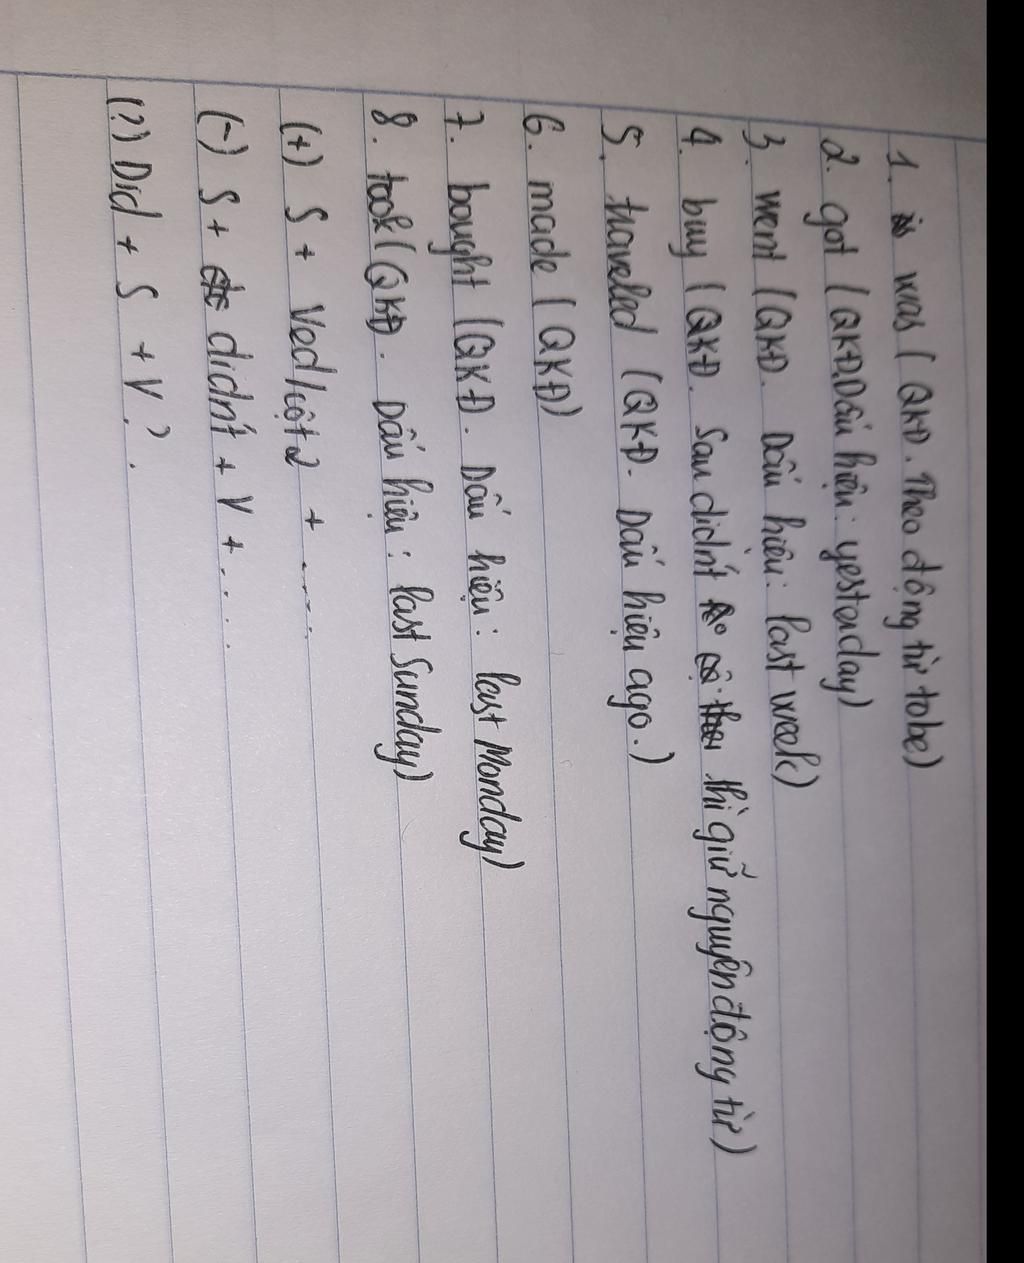 1. was (QKĐ. Theo động từ tobe)
2. got (QKĐ Dấu hiệu: yesterday)
3. went (QKĐ. Dấu hiệu: last week)
4. buy (QKĐ. Sau didn't thì giữ nguyên động từ)
5. traveled (QKĐ. Dấu hiệu ago.)
6. made (QKĐ)
7. bought (QKĐ. Dấu hiệu: last Monday)
8. took (QKĐ. Dấu hiệu: last Sunday)
(+) S + Ved/cột2 + .....
(-) S + didn't + V + .....
(?) Did + S + V?.